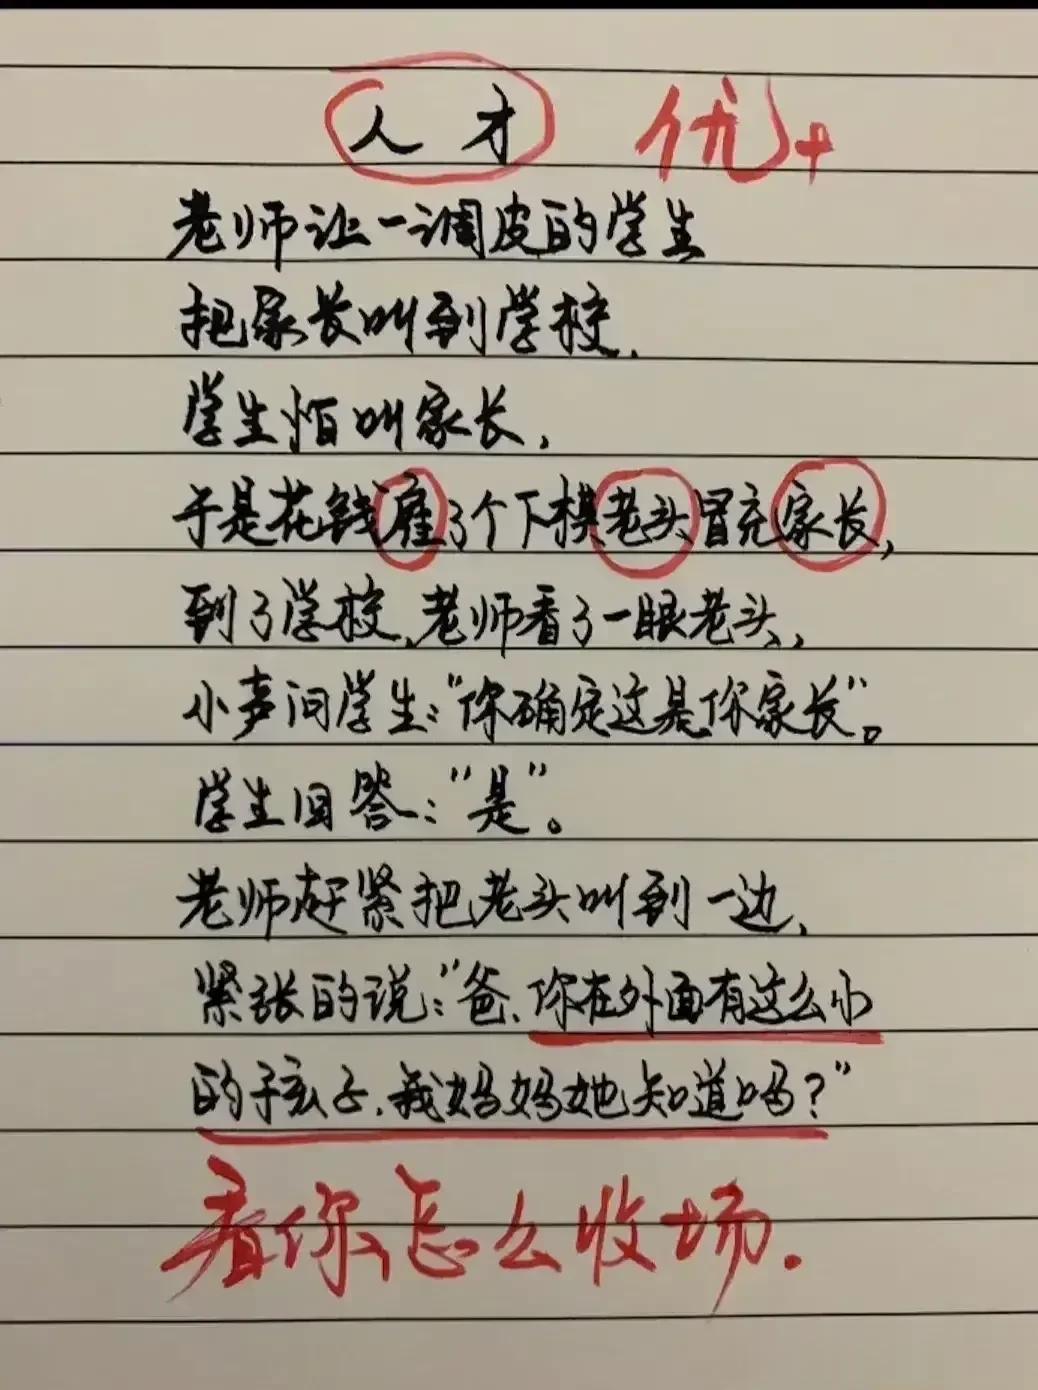 人才 优+
老师让一调皮的学生
把家长叫到学校,
学生怕叫家长,
于是花钱雇了个下棋老头冒充家长,
到了学校,老师看了一眼老头,
小声问学生:"你确定这是你家长"。
学生回答:"是"。
老师赶紧把老头叫到一边,
紧张的说:"爸,你在外面有这么小
的孩子,我妈妈她知道吗?"
看你怎么收场.